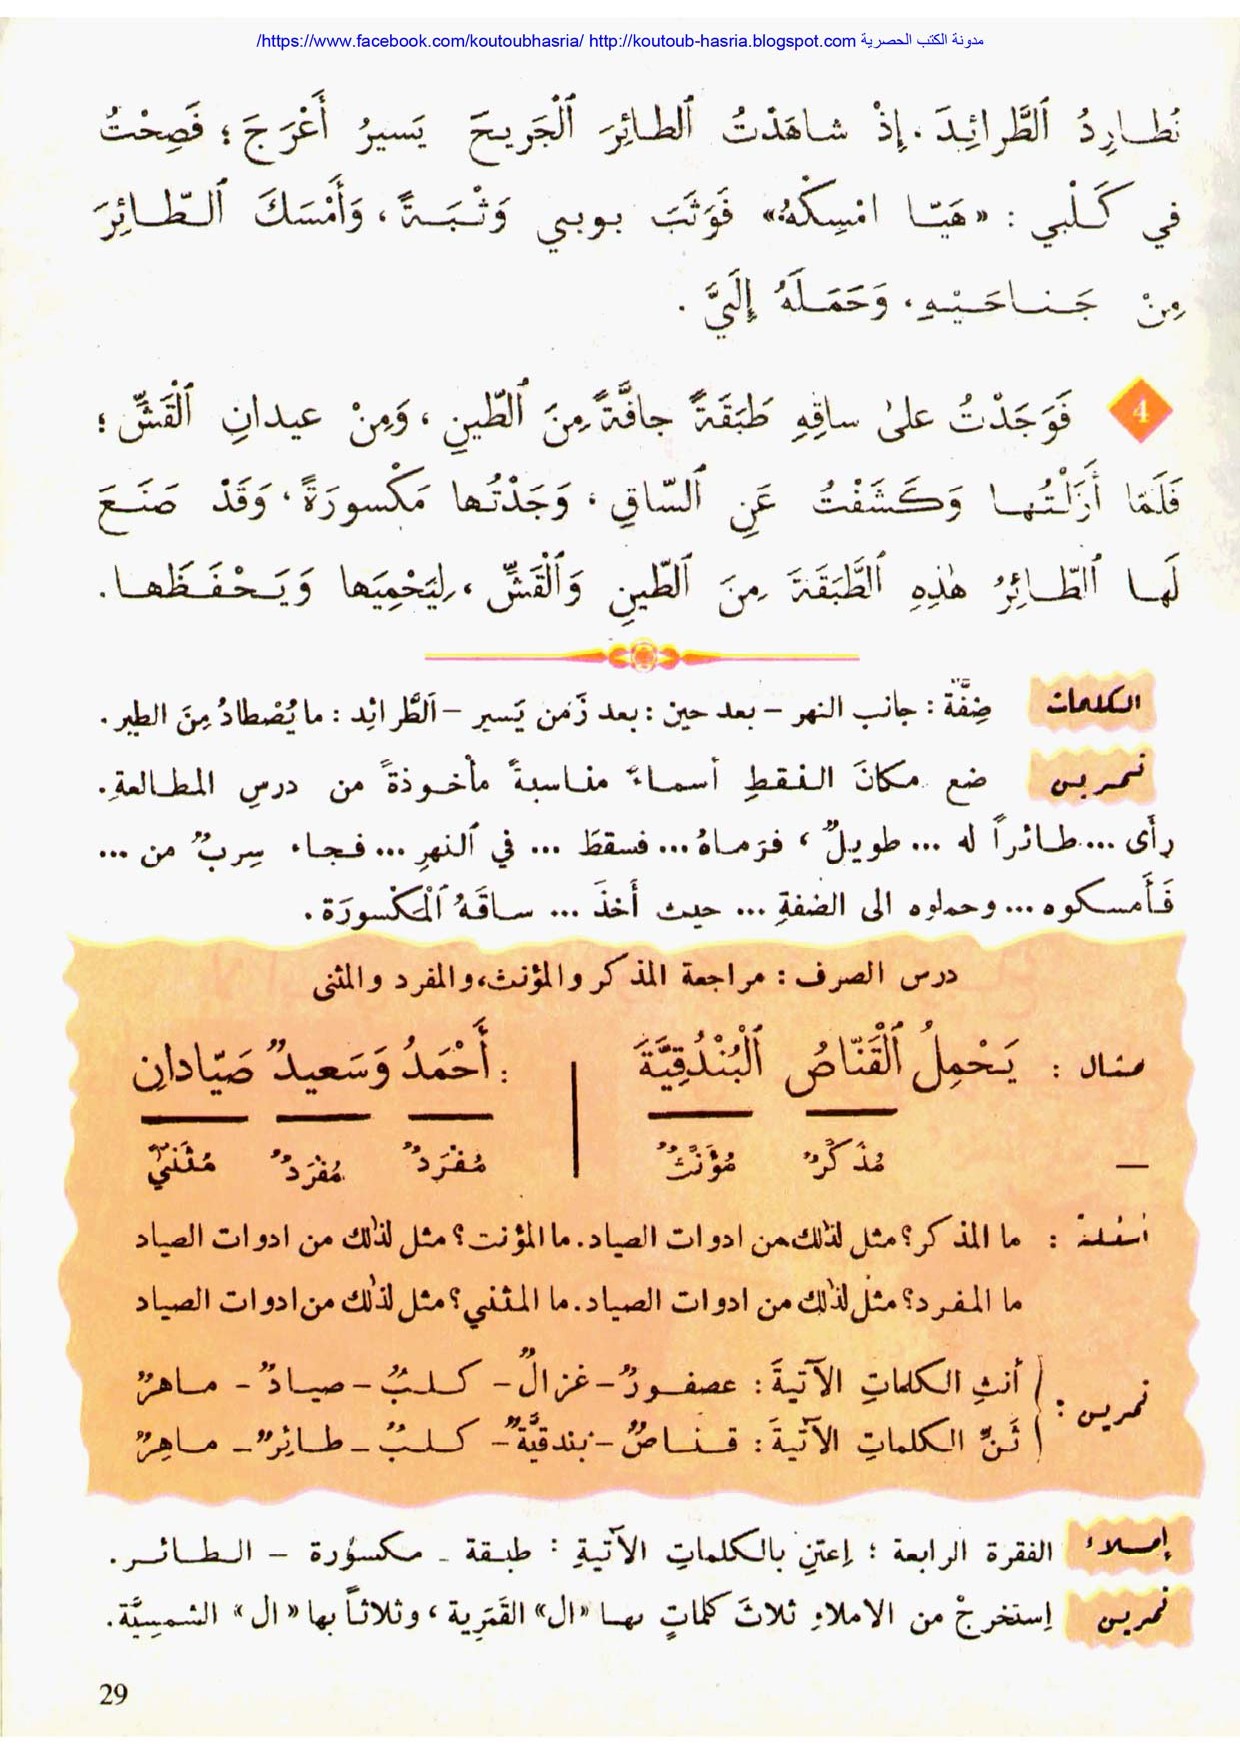 https://www.facebook.com/koutoubhasria/ http://koutoub-hasria.blogspot.com مدونة الكتب الحصرية/
نُطـارِدُ ٱلطَّرائِـدَ. إِذْ شاهَدْتُ ٱلطائِرَ ٱلْجَريحَ يَسيرُ أَعْرَجَ؛ فَصِحْتُ
في كَـلْبي : «هَيّـا امْسِكْهُ» فَوَثَبَ بوبي وَثْبَـةً، وَأَمْسَكَ ٱلطّـائِرَ
مِنْ جَـنـاحَـيْـهِ، وَحَمَـلَهُ إِلَيَّ .
4 فَوَجَدْتُ علىٰ ساقِهِ طَبَقَةً جافَّةً مِنَ ٱلطّينِ ، وَمِنْ عيدانِ ٱلْقَشِّ ؛
فَلَمّا أَزَلْتُـهـا وَكَـشَفْتُ عَنِ ٱلسّاقِ ، وَجَدْتُـها مَكْسورَةً ، وَقَدْ صَنَـعَ
لَهـا ٱلطّـائِرُ هٰذِهِ ٱلطَّبَقَةَ مِنَ ٱلطّينِ وَٱلْقَشِّ ، لِيَحْمِيَها وَيَـحْـفَـظَهـا.
الكلمات ضِفَّة : جانب النهر – بعد حين : بعد زَمن يَسير – اَلطَّرائِد : ما يُصْطادُ مِنَ الطير.
تمرين ضع مكانَ النقطِ أسماءً مناسبةً مأخوذةً من درسِ المطـالعةِ.
رأَى ... طـائراً له ... طويلٌ ، فرَمـاهُ... فسقطَ ... في ٱلنهرِ ... فـجاء سِربٌ من ...
فَأَمسكوه ... وحملوه الى الضفةِ ... حيث أَخذَ ... ساقَهُ ٱلْمَكْسورَة.
درس الصرف : مراجعة المذكر والمؤنث، والمفرد والمثنى
مثال : يَـحْمِلُ ٱلْقَنّاصُ ٱلْبُنْدُقِيَّةَ : أَحْمَدُ وَسَعيدٌ صَيّادانِ
— مُذَكَّرٌ مُؤَنَّثٌ مُفْرَدٌ مُفْرَدٌ مُثَنىًّ
أسئلة : ما المذكر؟ مثل لذلك من ادوات الصياد. ما المؤنت؟ مثل لذلك من ادوات الصياد
ما المفرد؟ مثل لذلك من ادوات الصياد. ما المثني؟ مثل لذلك من ادوات الصياد
تمرين : أنثِ الكلماتِ الآتيةَ : عصفـورٌ – غزالٌ – كـلـبٌ – صيـادٌ – مـاهرٌ
ثَنِّ الكلماتِ الآتيةَ : قـنـاصٌ – بندقيَّةٌ – كـلـبٌ – طـائِرٌ – مـاهِرٌ
إمـلاء الفقرة الرابعة ؛ اِعتنِ بالكلماتِ الآتيةِ : طبقة – مكسورة – الـطـائـر.
تمرين اِستخرجْ من الاملاءِ ثلاثَ كلماتٍ بهـا «ال» القَمَرِية ، وثلاثاً بها «ال» الشمسِيَّة.
29